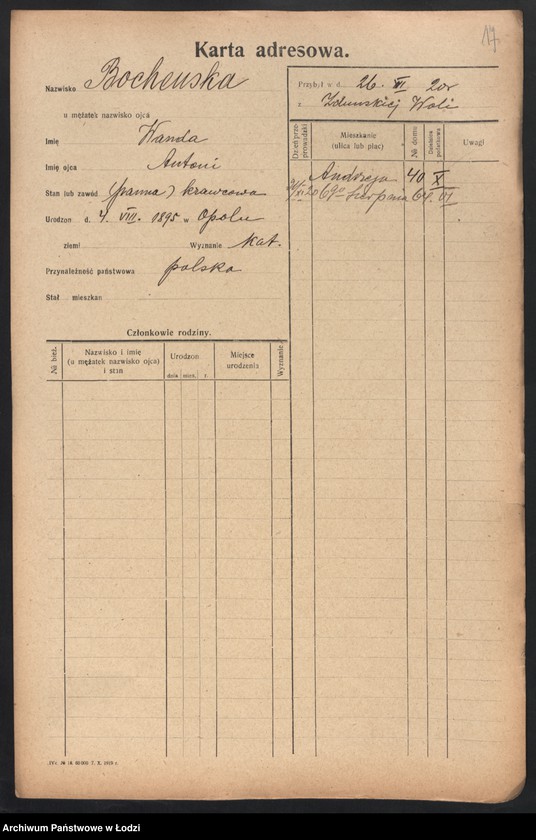 17.
Karta adresowa.
Nazwisko Bocheńska
u mężatek nazwisko ojca
Imię Wanda
Imię ojca Antoni
Stan lub zawód (panna) krawcowa
Urodzon d. 4. VIII. 1895 w Opolu
ziemi Wyznanie kat.
Przynależność państwowa polska
Stał mieszkan
Przybył w d. 26. VI 20r
z Zduńskiej Woli
Dzień przeprowadzki
Mieszkanie (ulica lub plac)
№ domu
Dzielnica podatkowa
Uwagi
Andrzeja 40 X
XI 20 6go Sierpnia 64. VI
Członkowie rodziny.
№ bież.
Nazwisko i imię (u mężatek nazwisko ojca) i stan
Urodzon
dnia mies. r.
Miejsce urodzenia
Wyznanie
7. X. 1919 r.
Archiwum Państwowe w Łodzi